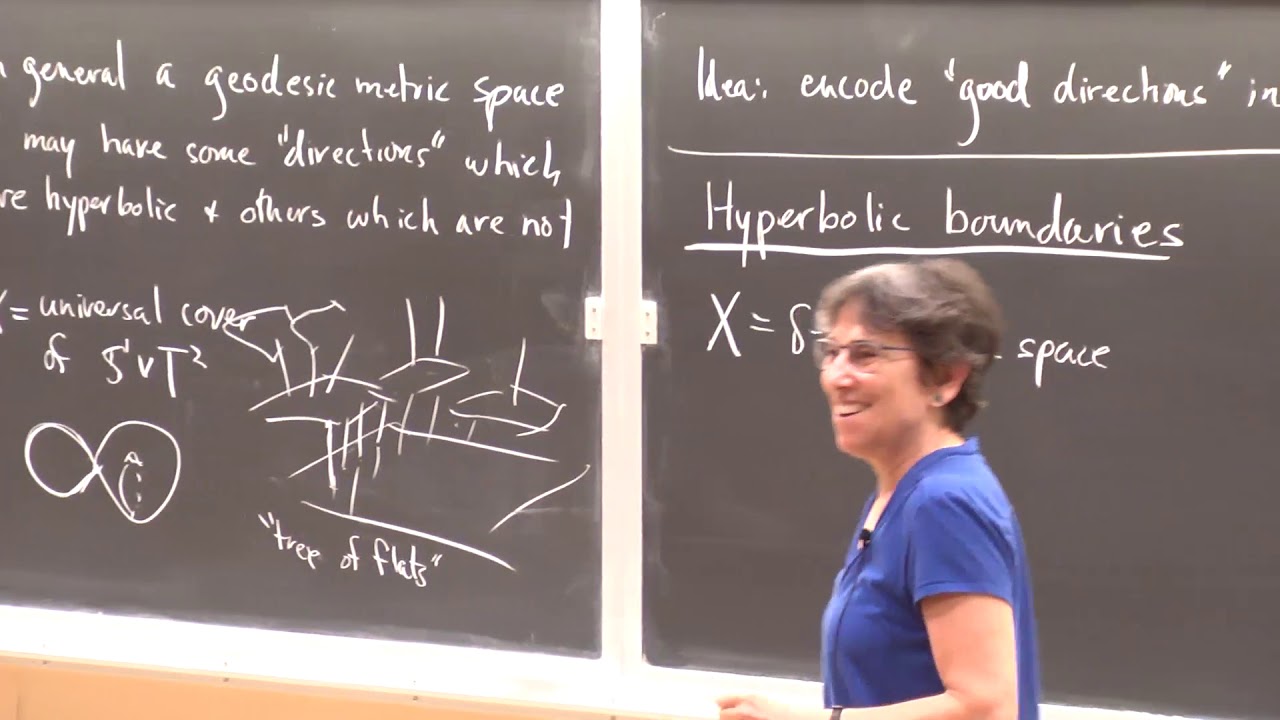 general a geodesic metric space
may have some "directions" which
hyperbolic & others which are not
= universal cover
of S¹ ∨ T²
"tree of flats"
Idea: encode "good directions" in
Hyperbolic boundaries
X = δ space